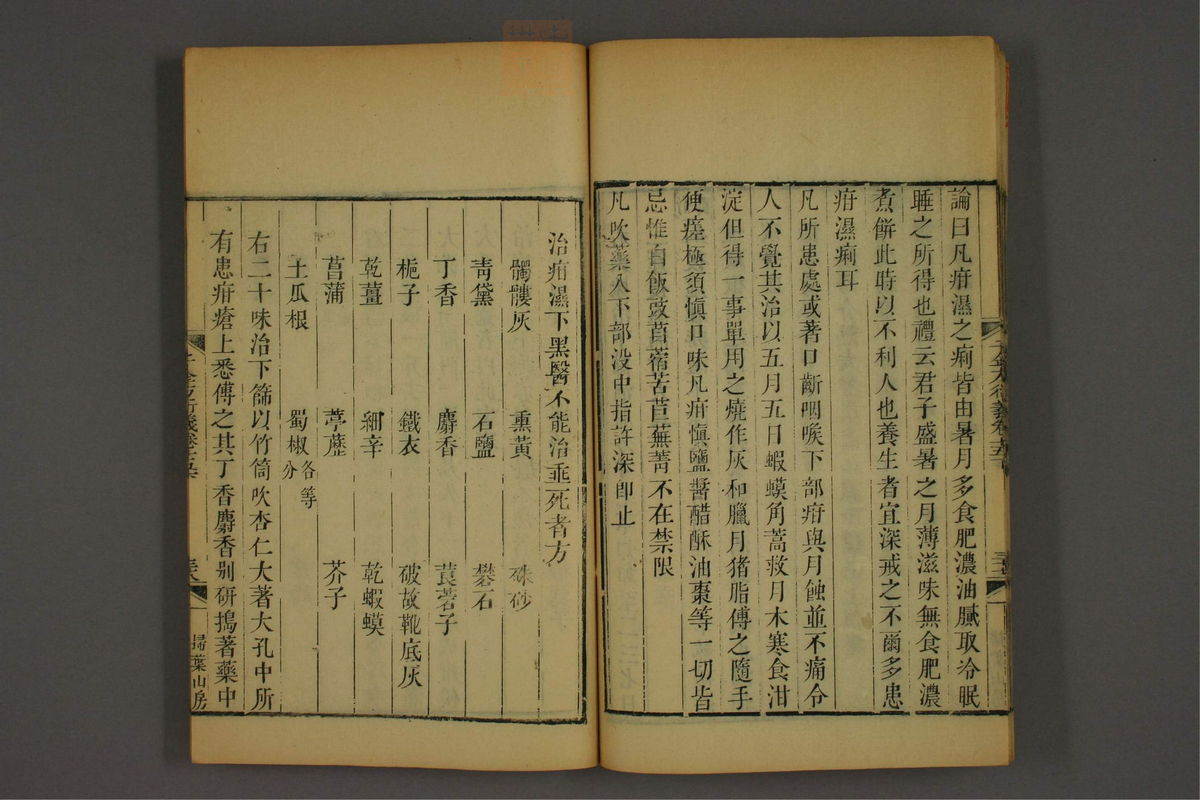 論曰凡疳濕之痢皆由暑月多食肥濃油膩取冷眠
睡之所得也禮云君子盛暑之月薄滋味無食肥濃
煮餅此時以不利人也養生者宜深戒之不爾多患
疳濕痢耳
凡所患處或著口齗咽喉下部疳與月蝕並不痛令
人不覺其治以五月五日蝦蟆角蒿救月木寒食泔
淀但得一事單用之燒作灰和臘月猪脂傅之隨手
便瘥極須慎口味凡疳慎鹽醬醋酥油棗等一切皆
忌惟白飯豉苜蓿苦苣蕪菁不在禁限
凡吹藥入下部没中指許深卽止
治疳濕下黑醫不能治垂死者方
髑髏灰 熏黃 硃砂
靑黛 石鹽 礬石
丁香 麝香 莨菪子
梔子 鐵衣 破故靴底灰
乾薑 細辛 乾蝦蟆
菖蒲 葶藶 芥子
土瓜根 蜀椒各等分
右二十味治下篩以竹筒吹杏仁大著大孔中所
有患疳瘡上悉傅之其丁香麝香别研搗著藥中
掃葉山房